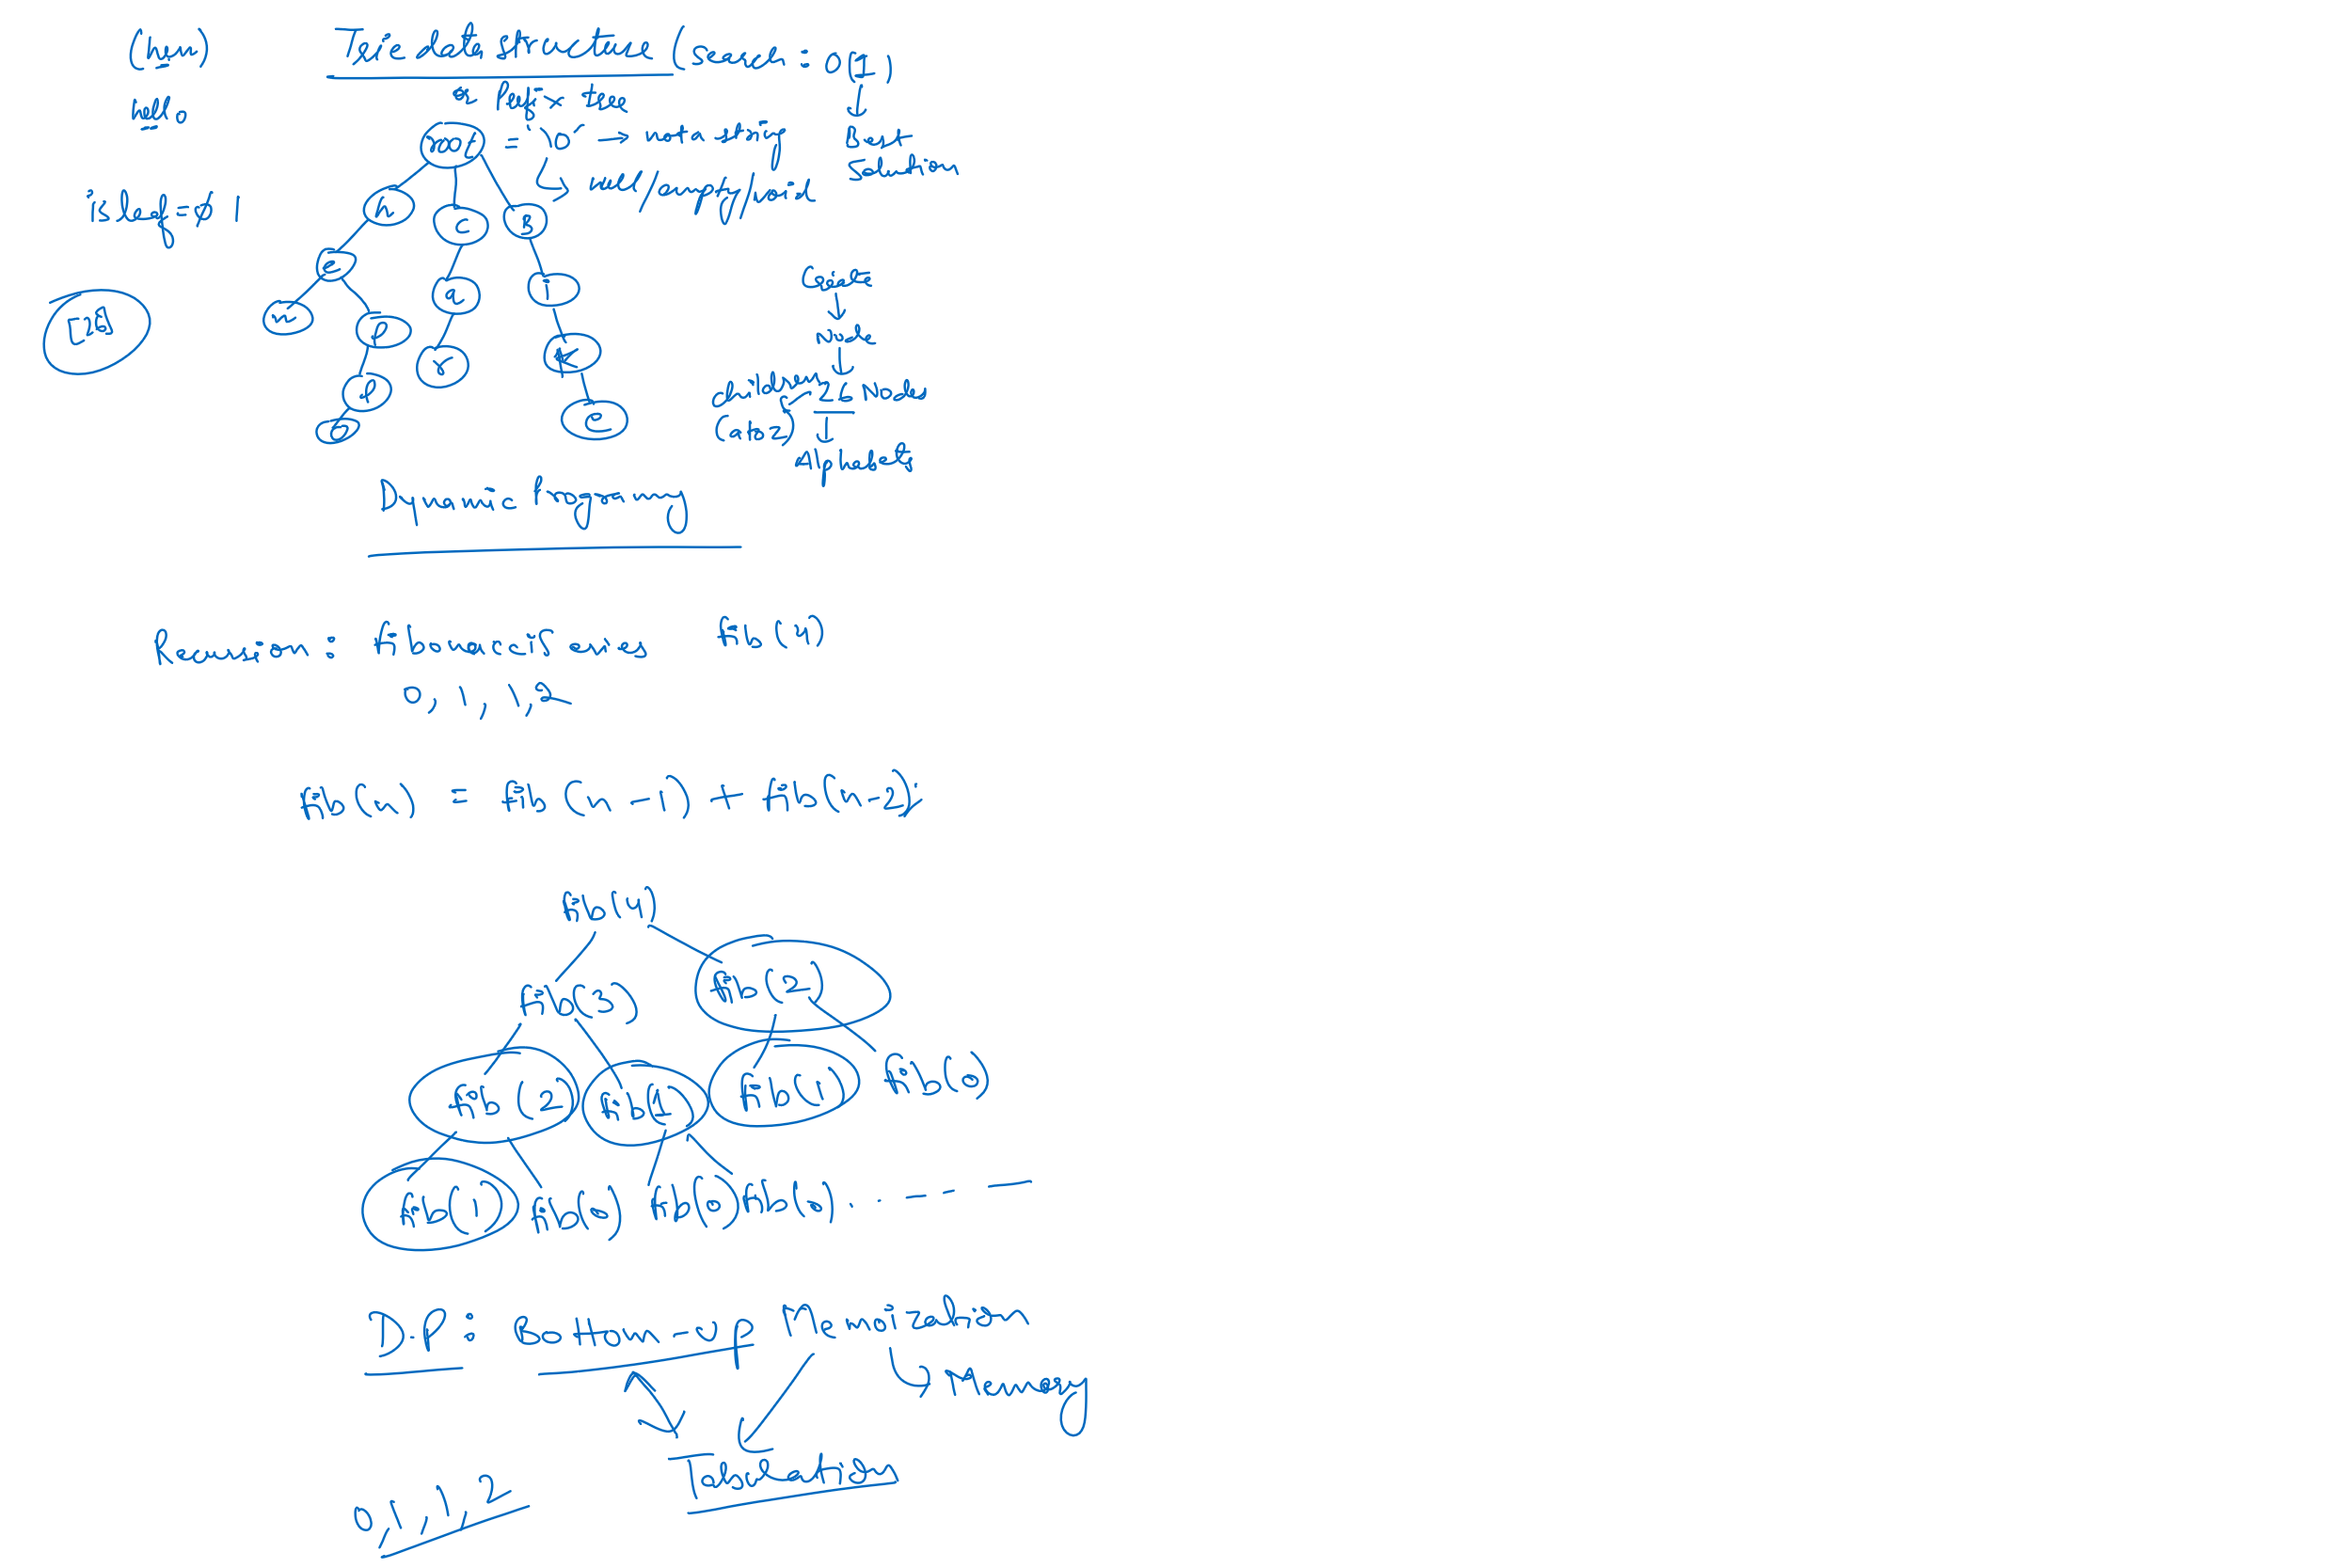 (hen)
Trie data structure (search : O(1)
hello
or Prefix tree
root = '\0' → not a string
Best
Solution
null/empty/void
isleaf = 0 1
h c B
e a i
n l r k
l e
o
[26]
Create
Node
children → 26 Nodes
(a to z)
Alphabets
Dynamic Programming
Recursion : fibonacci series fib(4)
0, 1, 1, 2
fib(n) = fib(n-1) + fib(n-2);
fib(4)
fib(3) fib(2)
fib(2) fib(1) fib(1) fib(0)
fib(1) fib(0) fib(0) fib(0) . . - - —
D.P : Bottom-up Memoization
Memory
Tabulation
0, 1, 1, 2